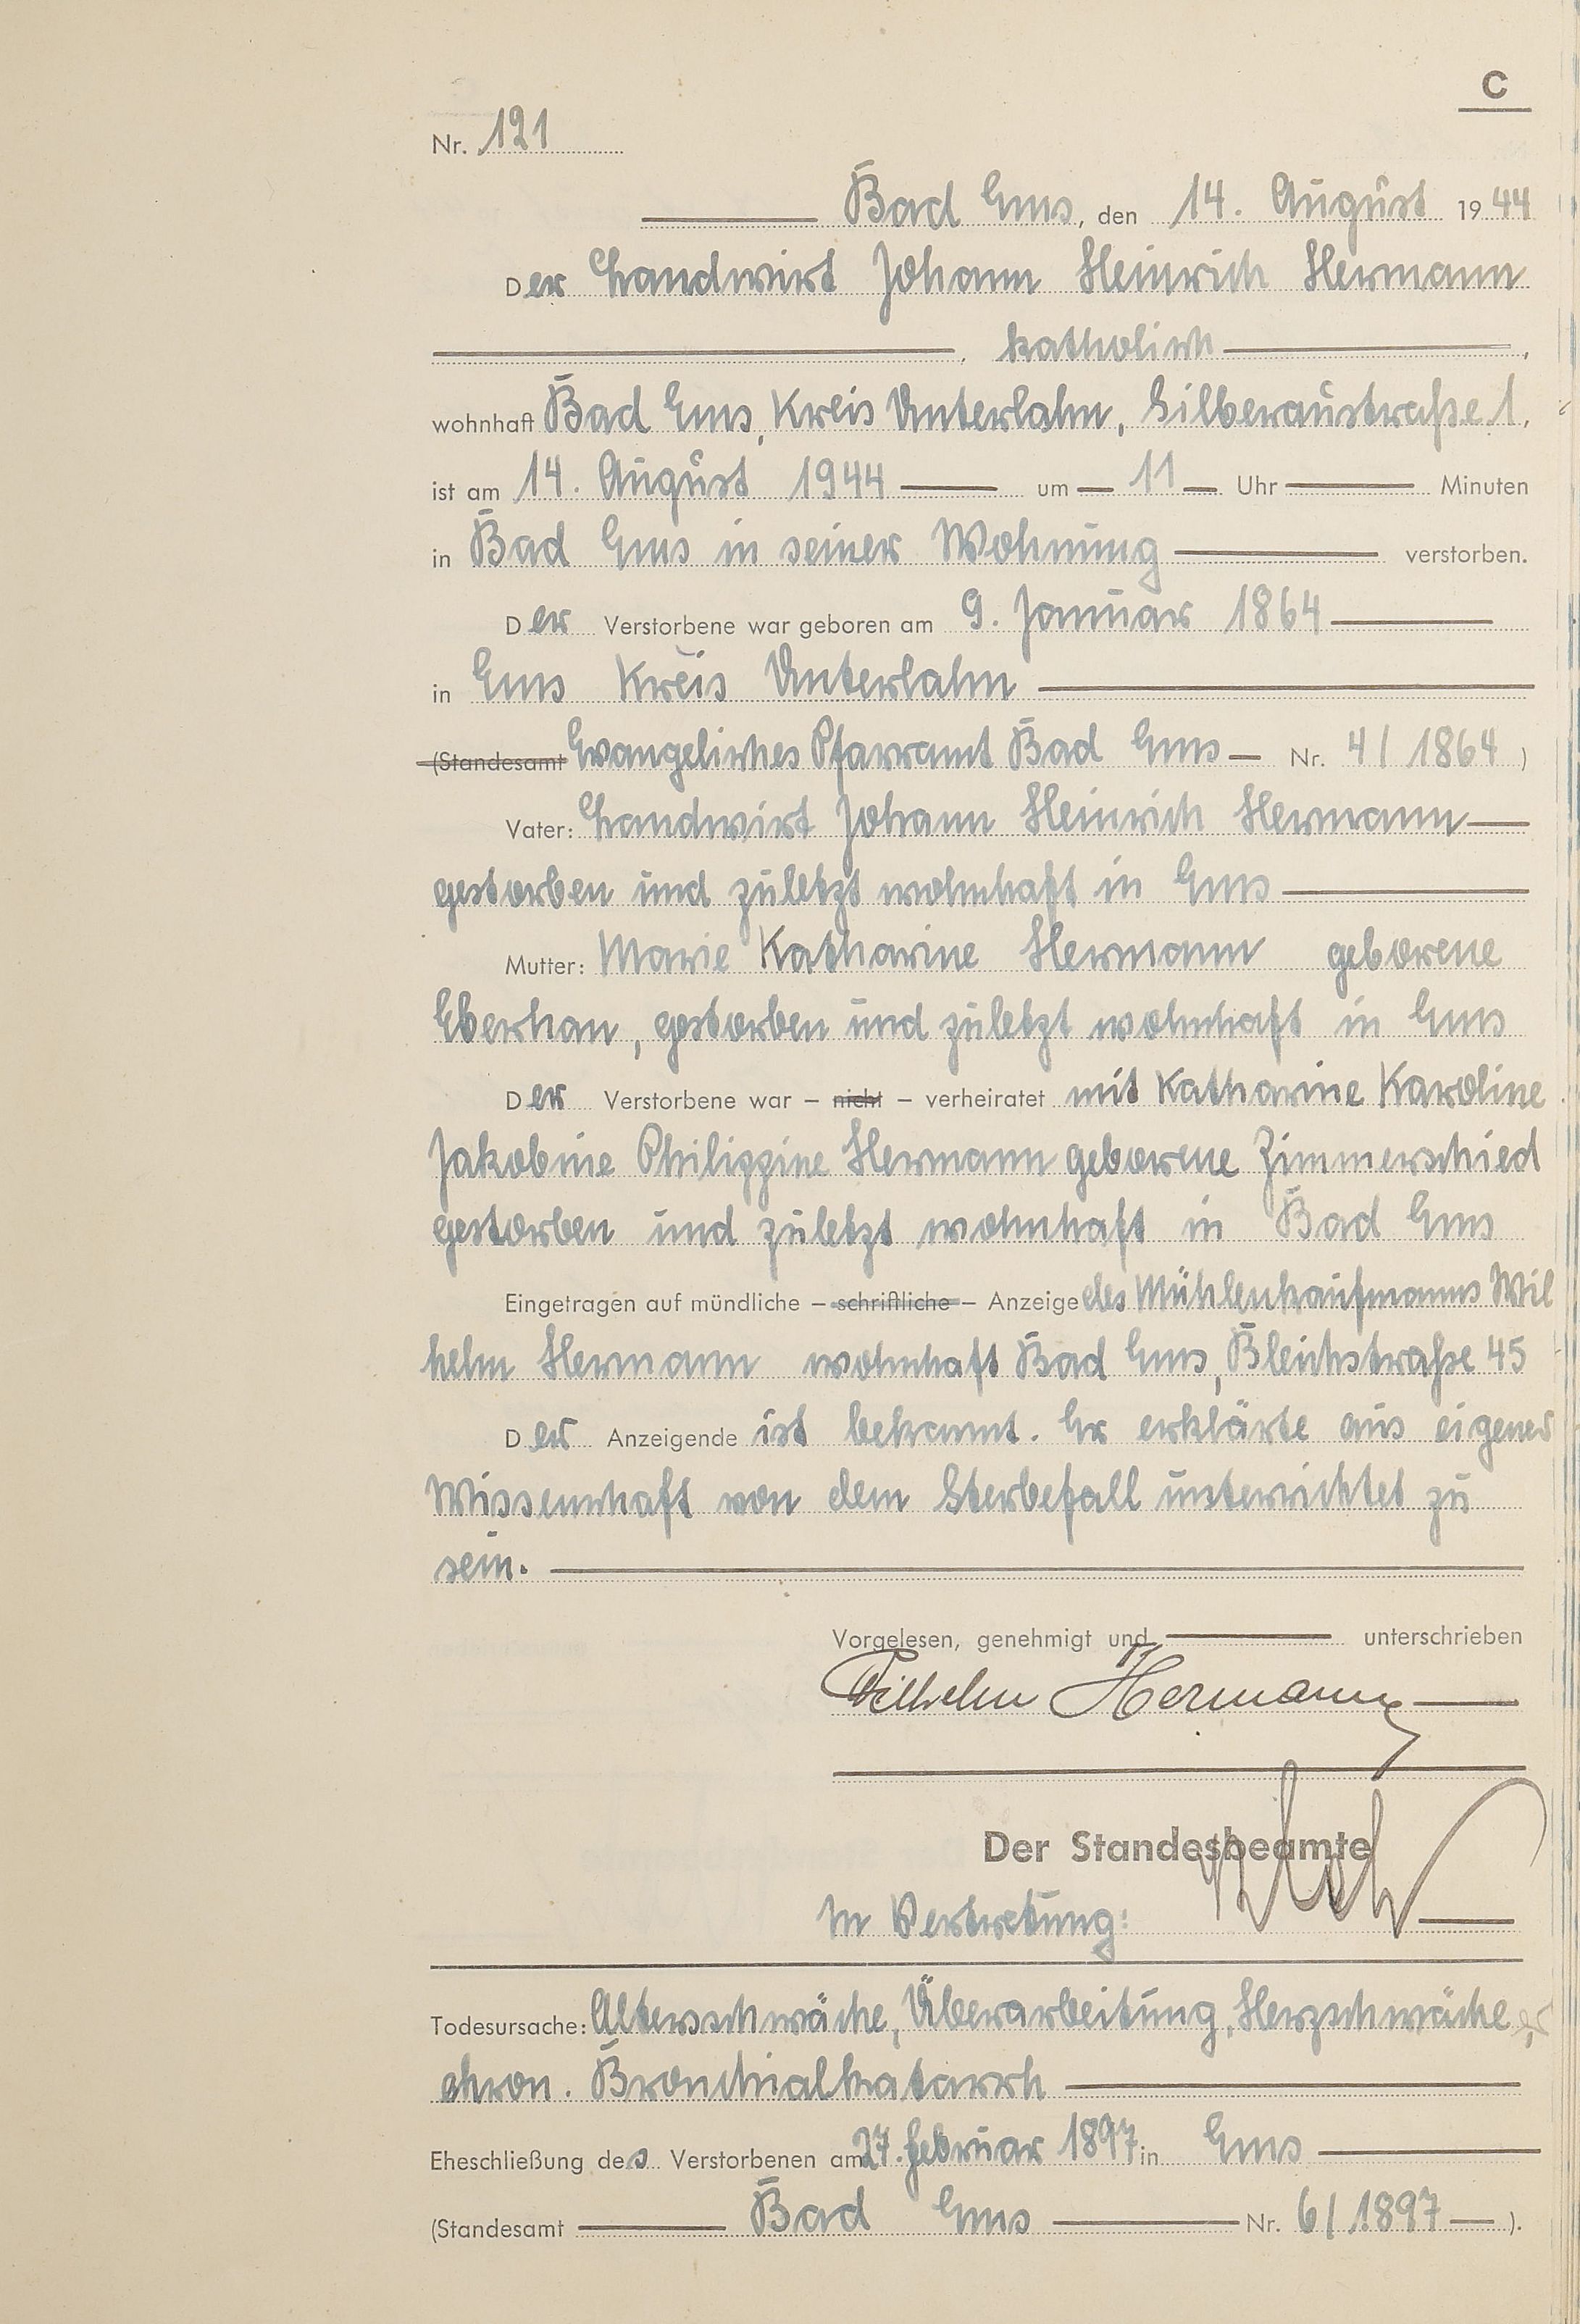 C
Nr. 121
Bad Ems, den 14. August 1944
Der Landwirt Johann Heinrich Hermann
, katholisch ,
wohnhaft Bad Ems, Kreis Unterlahn, Silberaustraße 1,
ist am 14. August 1944 um 11 Uhr Minuten
in Bad Ems in seiner Wohnung verstorben.
Der Verstorbene war geboren am 9. Januar 1864
in Ems Kreis Unterlahn
(Standesamt Evangelisches Pfarramt Bad Ems — Nr. 4/1864)
Vater: Landwirt Johann Heinrich Hermann
gestorben und zuletzt wohnhaft in Ems
Mutter: Marie Katharine Hermann geborene
Eberhan, gestorben und zuletzt wohnhaft in Ems
Der Verstorbene war – nicht – verheiratet mit Katharine Karoline
Jakobine Philippine Hermann geborene Zimmerschied
gestorben und zuletzt wohnhaft in Bad Ems
Eingetragen auf mündliche – schriftliche – Anzeige des Mühlenkaufmanns Wil
helm Hermann wohnhaft Bad Ems, Bleichstraße 45
Der Anzeigende ist bekannt. Er erklärte aus eigener
Wissenschaft von dem Sterbefall unterrichtet zu
sein.
Vorgelesen, genehmigt und unterschrieben
Wilhelm Hermann
Der Standesbeamte
In Vertretung:
Todesursache: Altersschwäche, Überarbeitung, Herzschwäche,
chron. Bronchialkatarrh
Eheschließung des Verstorbenen am 27. Februar 1897 in Ems
(Standesamt Bad Ems Nr. 6/1897 — ).